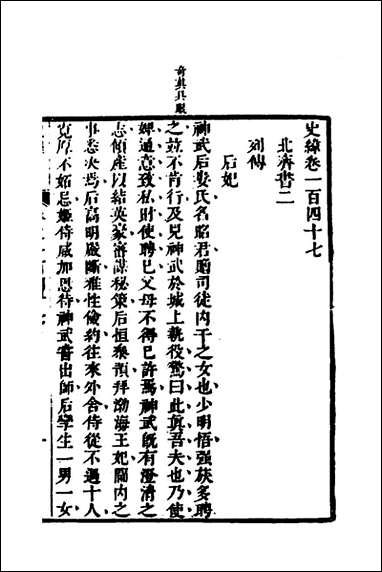 奇真具眼
史緯卷一百四十七
北齊書二
列傳
后妃
神武后婁氏名昭君贈司徒內干之女也少明悟强族多聘
之竝不肯行及見神武於城上執役驚曰此眞吾夫也乃使
婢通意致私財使聘已父母不得已許焉神武旣有澄清之
志傾產以結英豪密謀秘策后恒參預拜渤海王妃閫內之
事悉決焉后高明嚴斷雅性儉約往來外舍侍從不過十人
寬厚不妬忌姬侍咸加恩待神武嘗出師后孿生一男一女